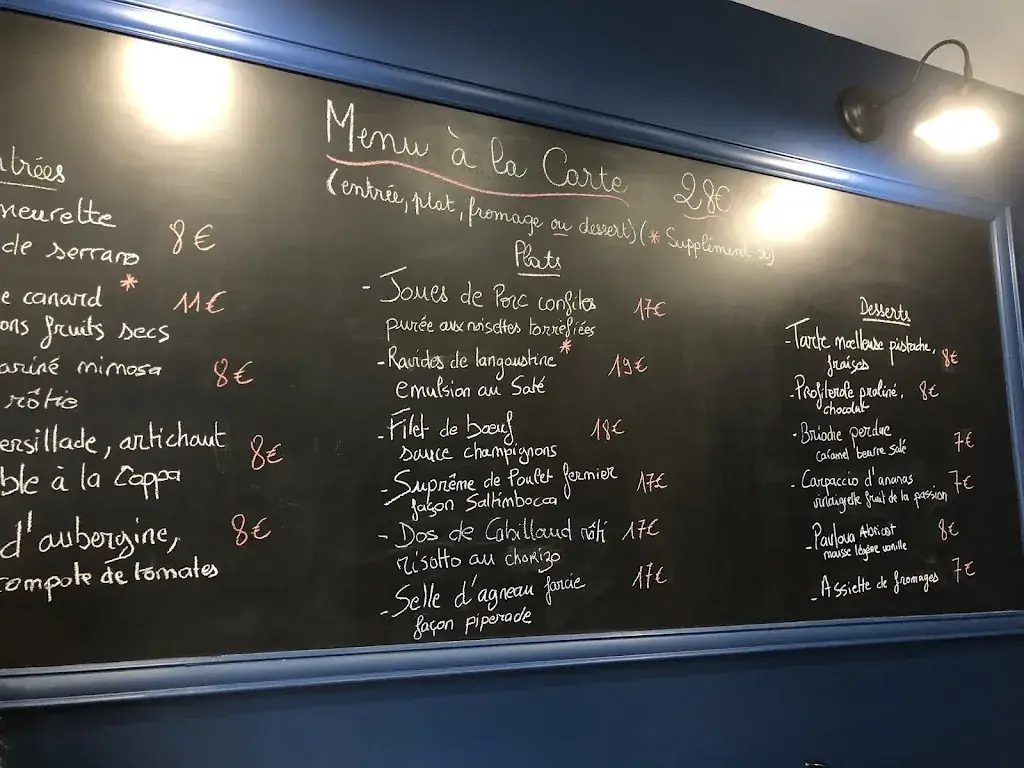 Menu à la Carte 28€
(entrée, plat, fromage ou dessert) (* Supplément 3€)
ntrées
meurette
de serrano 8€
e canard * 11€
ons fruits secs
ariné mimosa 8€
rôtie
ersillade, artichaut 8€
ble à la Coppa
d'aubergine, 8€
compote de tomates
Plats
- Joues de Porc confites 17€
purée aux noisettes torréfiées
- Ravioles de langoustine * 19€
emulsion au Saté
- Filet de bœuf 18€
sauce champignons
- Suprême de Poulet fermier 17€
façon Saltimbocca
- Dos de Cabillaud rôti 17€
risotto au chorizo
- Selle d'agneau farcie 17€
façon piperade
Desserts
- Tarte moelleuse pistache, 8€
fraises
- Profiterole praliné, 8€
chocolat
- Brioche perdue 7€
caramel beurre salé
- Carpaccio d'ananas 7€
vinaigrette fruit de la passion
- Pavlova Abricot 8€
mousse légère vanille
- Assiette de fromages 7€